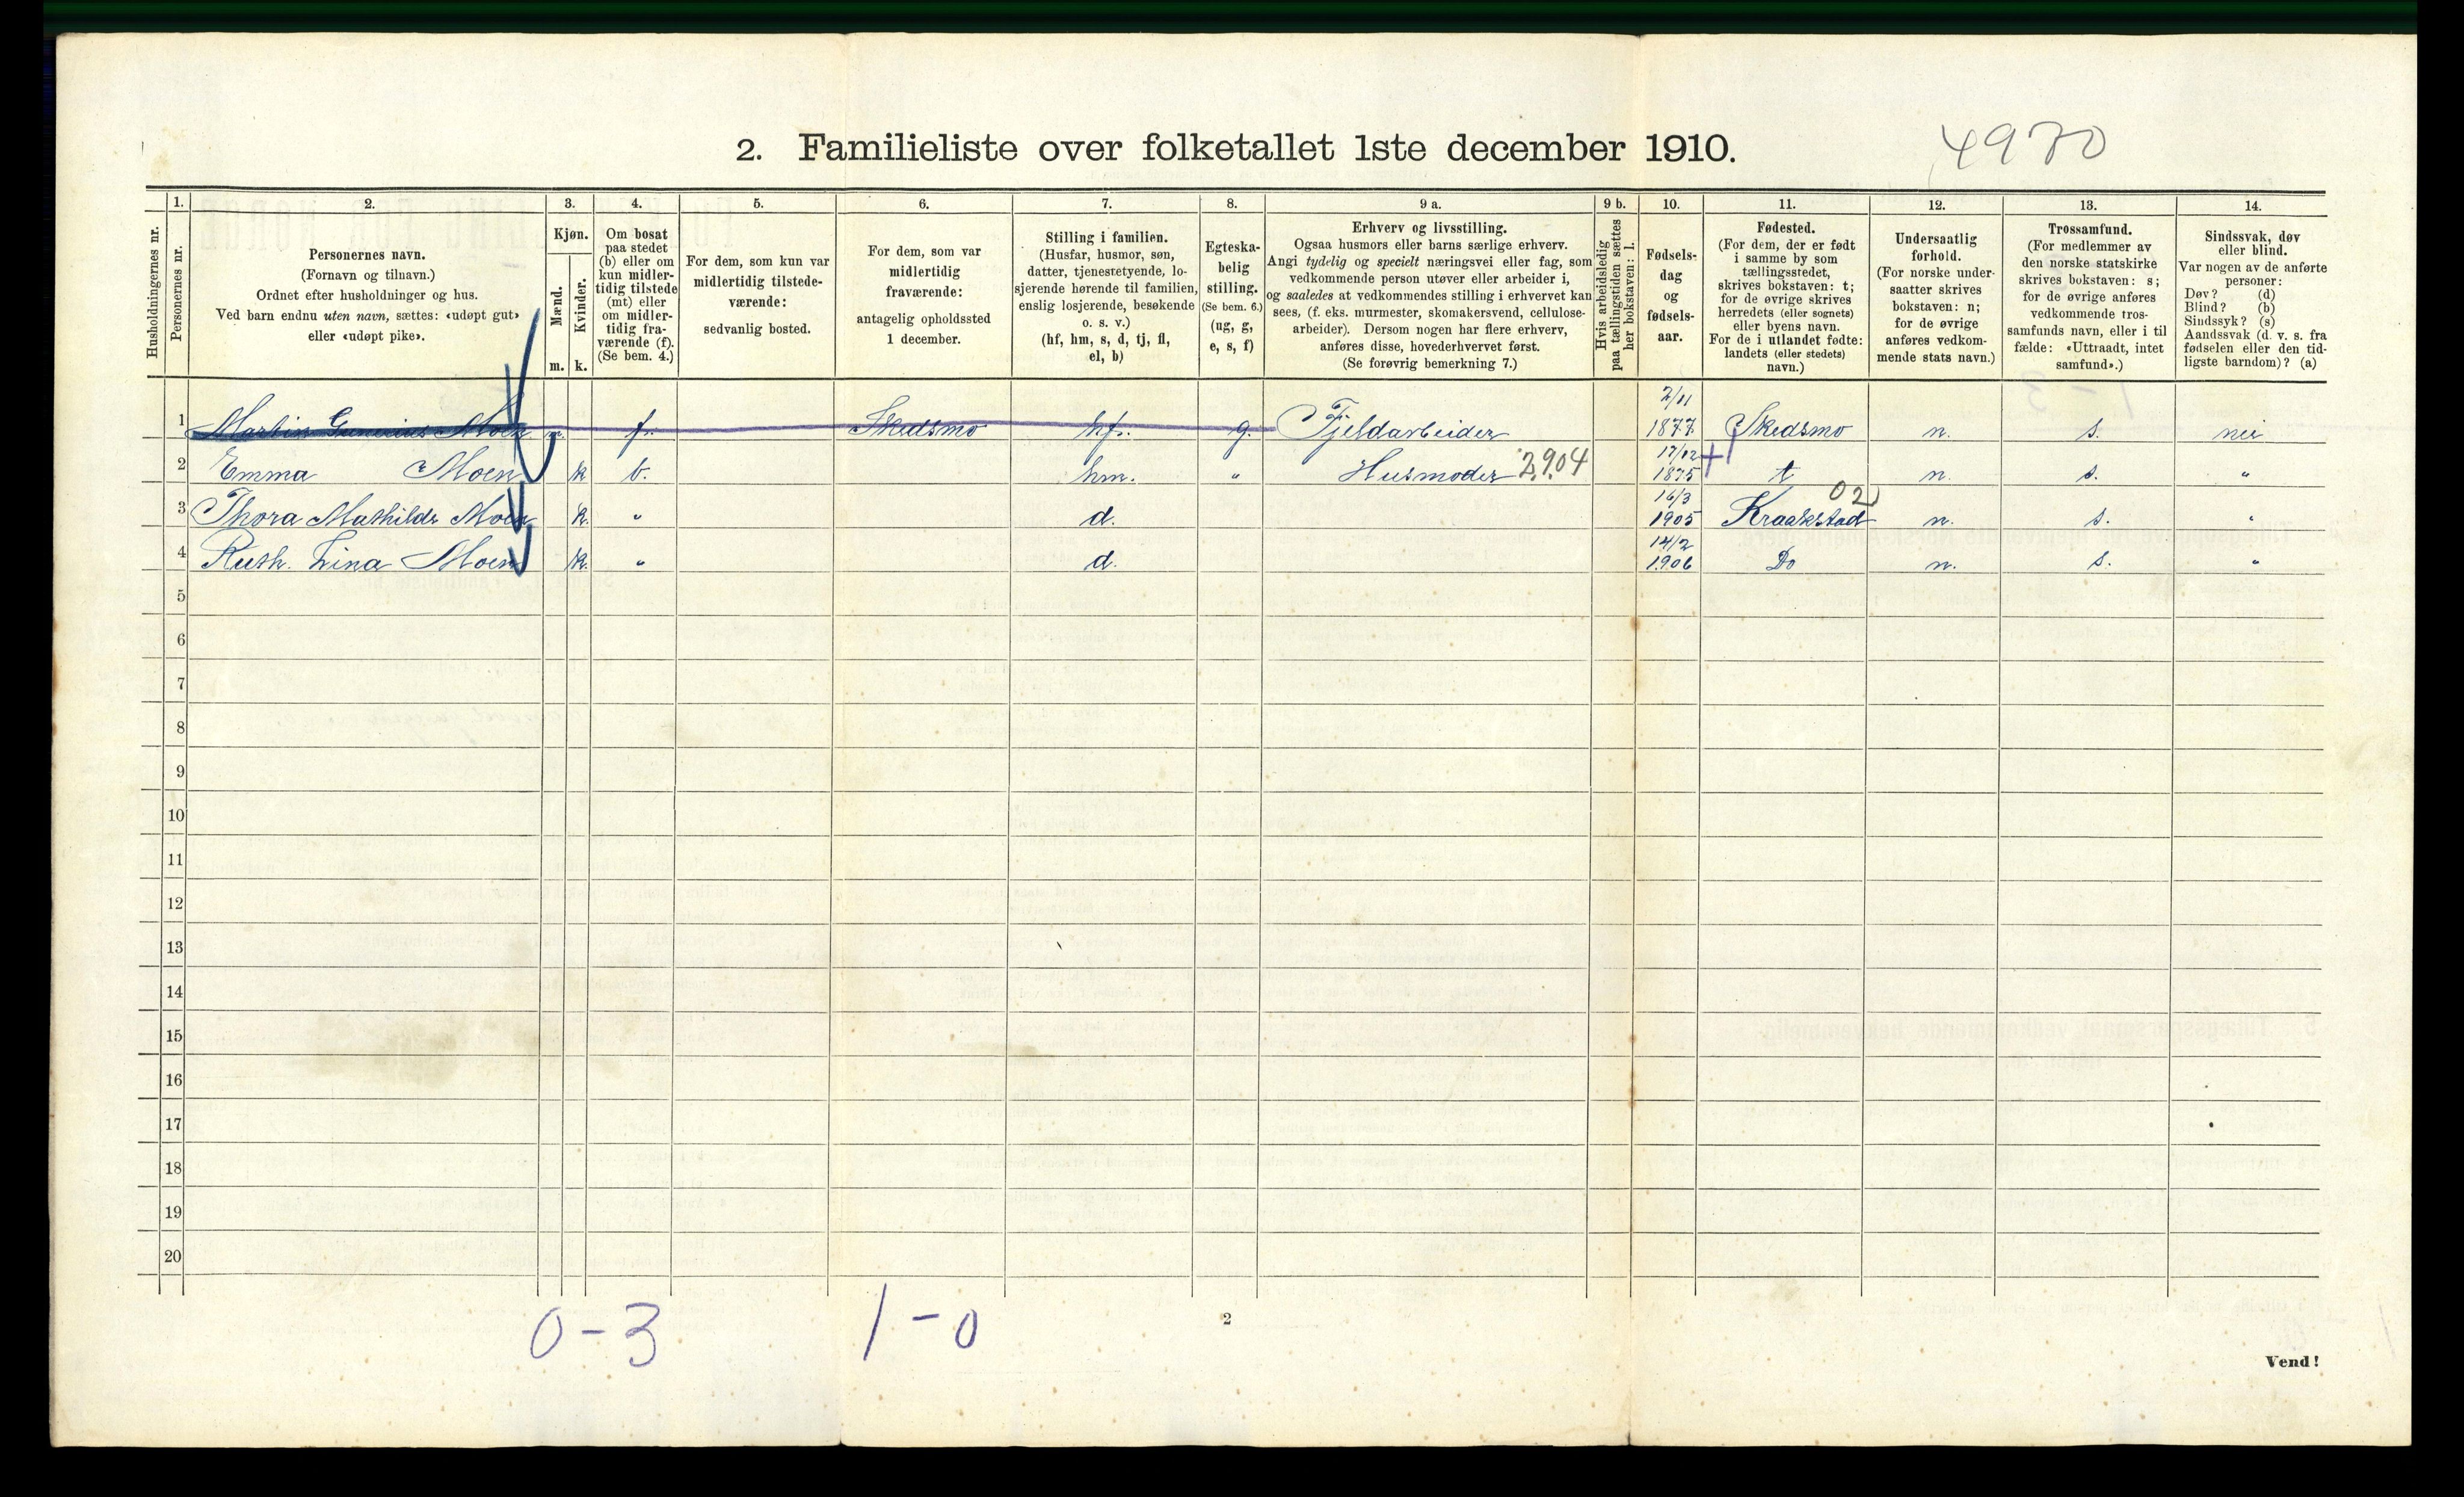 2. Familieliste over folketallet 1ste december 1910.
4970
Husholdningernes nr.
1.
Personernes nr.
2.
Personernes navn.
(Fornavn og tilnavn.)
Ordnet efter husholdninger og hus.
Ved barn endnu uten navn, sættes: «udøpt gut»
eller «udøpt pike».
3.
Kjøn.
Mænd.
m.
Kvinder.
k.
4.
Om bosat
paa stedet
(b) eller om
kun midler-
tidig tilstede
(mt) eller
om midler-
tidig fra-
værende (f).
(Se bem. 4.)
5.
For dem, som kun var
midlertidig tilstede-
værende:
sedvanlig bosted.
6.
For dem, som var
midlertidig
fraværende:
antagelig opholdssted
1 december.
7.
Stilling i familien.
(Husfar, husmor, søn,
datter, tjenestetyende, lo-
sjerende hørende til familien,
enslig losjerende, besøkende
o. s. v.)
(hf, hm, s, d, tj, fl,
el, b)
8.
Egteska-
belig
stilling.
(Se bem. 6.)
(ug, g,
e, s, f)
9 a.
Erhverv og livsstilling.
Ogsaa husmors eller barns særlige erhverv.
Angi tydelig og specielt næringsvei eller fag, som
vedkommende person utøver eller arbeider i,
og saaledes at vedkommendes stilling i erhvervet kan
sees, (f. eks. murmester, skomakersvend, cellulose-
arbeider). Dersom nogen har flere erhverv,
anføres disse, hovederhvervet først.
(Se forøvrig bemerkning 7.)
9 b.
Hvis arbeidsledig
paa tællingstiden sættes
her bokstaven: l.
10.
Fødsels-
dag
og
fødsels-
aar.
11.
Fødested.
(For dem, der er født
i samme by som
tællingsstedet,
skrives bokstaven: t;
for de øvrige skrives
herredets (eller sognets)
eller byens navn.
For de i utlandet fødte:
landets (eller stedets)
navn.)
12.
Undersaatlig
forhold.
(For norske under-
saatter skrives
bokstaven: n;
for de øvrige
anføres vedkom-
mende stats navn.)
13.
Trossamfund.
(For medlemmer av
den norske statskirke
skrives bokstaven: s;
for de øvrige anføres
vedkommende tros-
samfunds navn, eller i til
fælde: «Uttraadt, intet
samfund».)
14.
Sindssvak, døv
eller blind.
Var nogen av de anførte
personer:
Døv? (d)
Blind? (b)
Sindssyk? (s)
Aandssvak (d. v. s. fra
fødselen eller den tid-
ligste barndom)? (a)
1 Martin Moen m. f. Skedsmo hf. g. Fjeldarbeider 2/11 1877 Skedsmo n. s. nei
2 Emma Moen k b. hm. " Husmoder 2904 17/12 1875 t n. s. "
3 Thora Mathilde Moen k. " d. 16/3 1905 Kraakstad 02 n. s. "
4 Ruth. Lina Moen k. " d. 14/2 1906 Do n. s. "
5
6
7
8
9
10
11
12
13
14
15
16
17
18
19
20
0-3 1-0
2
Vend!